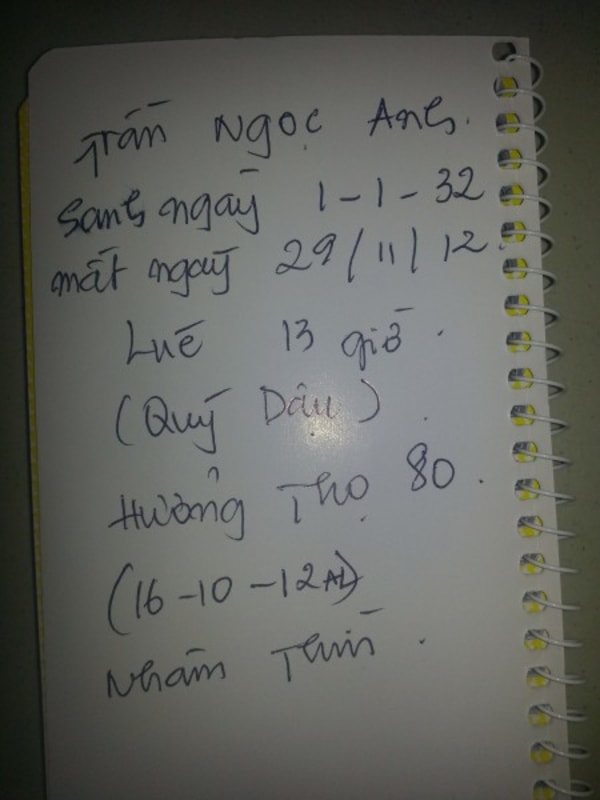 Trần Ngọc Anh.
Sanh ngày 1-1-32
mất ngày 29/11/12.
Lúc 13 giờ.
(Quý Dậu).
Hưởng Thọ 80.
(16-10-12AL)
Nhâm Thìn.